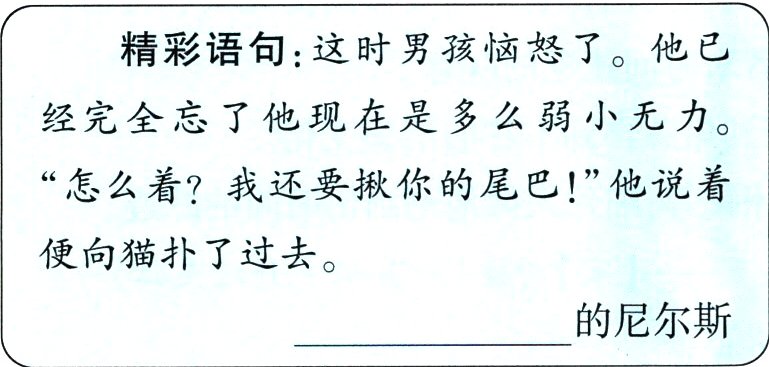 精彩语句:这时男孩恼怒了。他已
经完全忘了他现在是多么弱小无力。
“怎么着?我还要揪你的尾巴!”他说着
便向猫扑了过去。
____________的尼尔斯